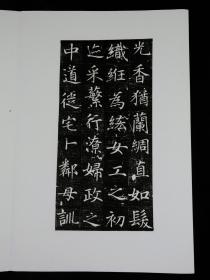 光香猶蘭綢直如髮
織絍為絃女工之初
迄采蘩行潦婦政之
中道徙宅卜鄰母訓